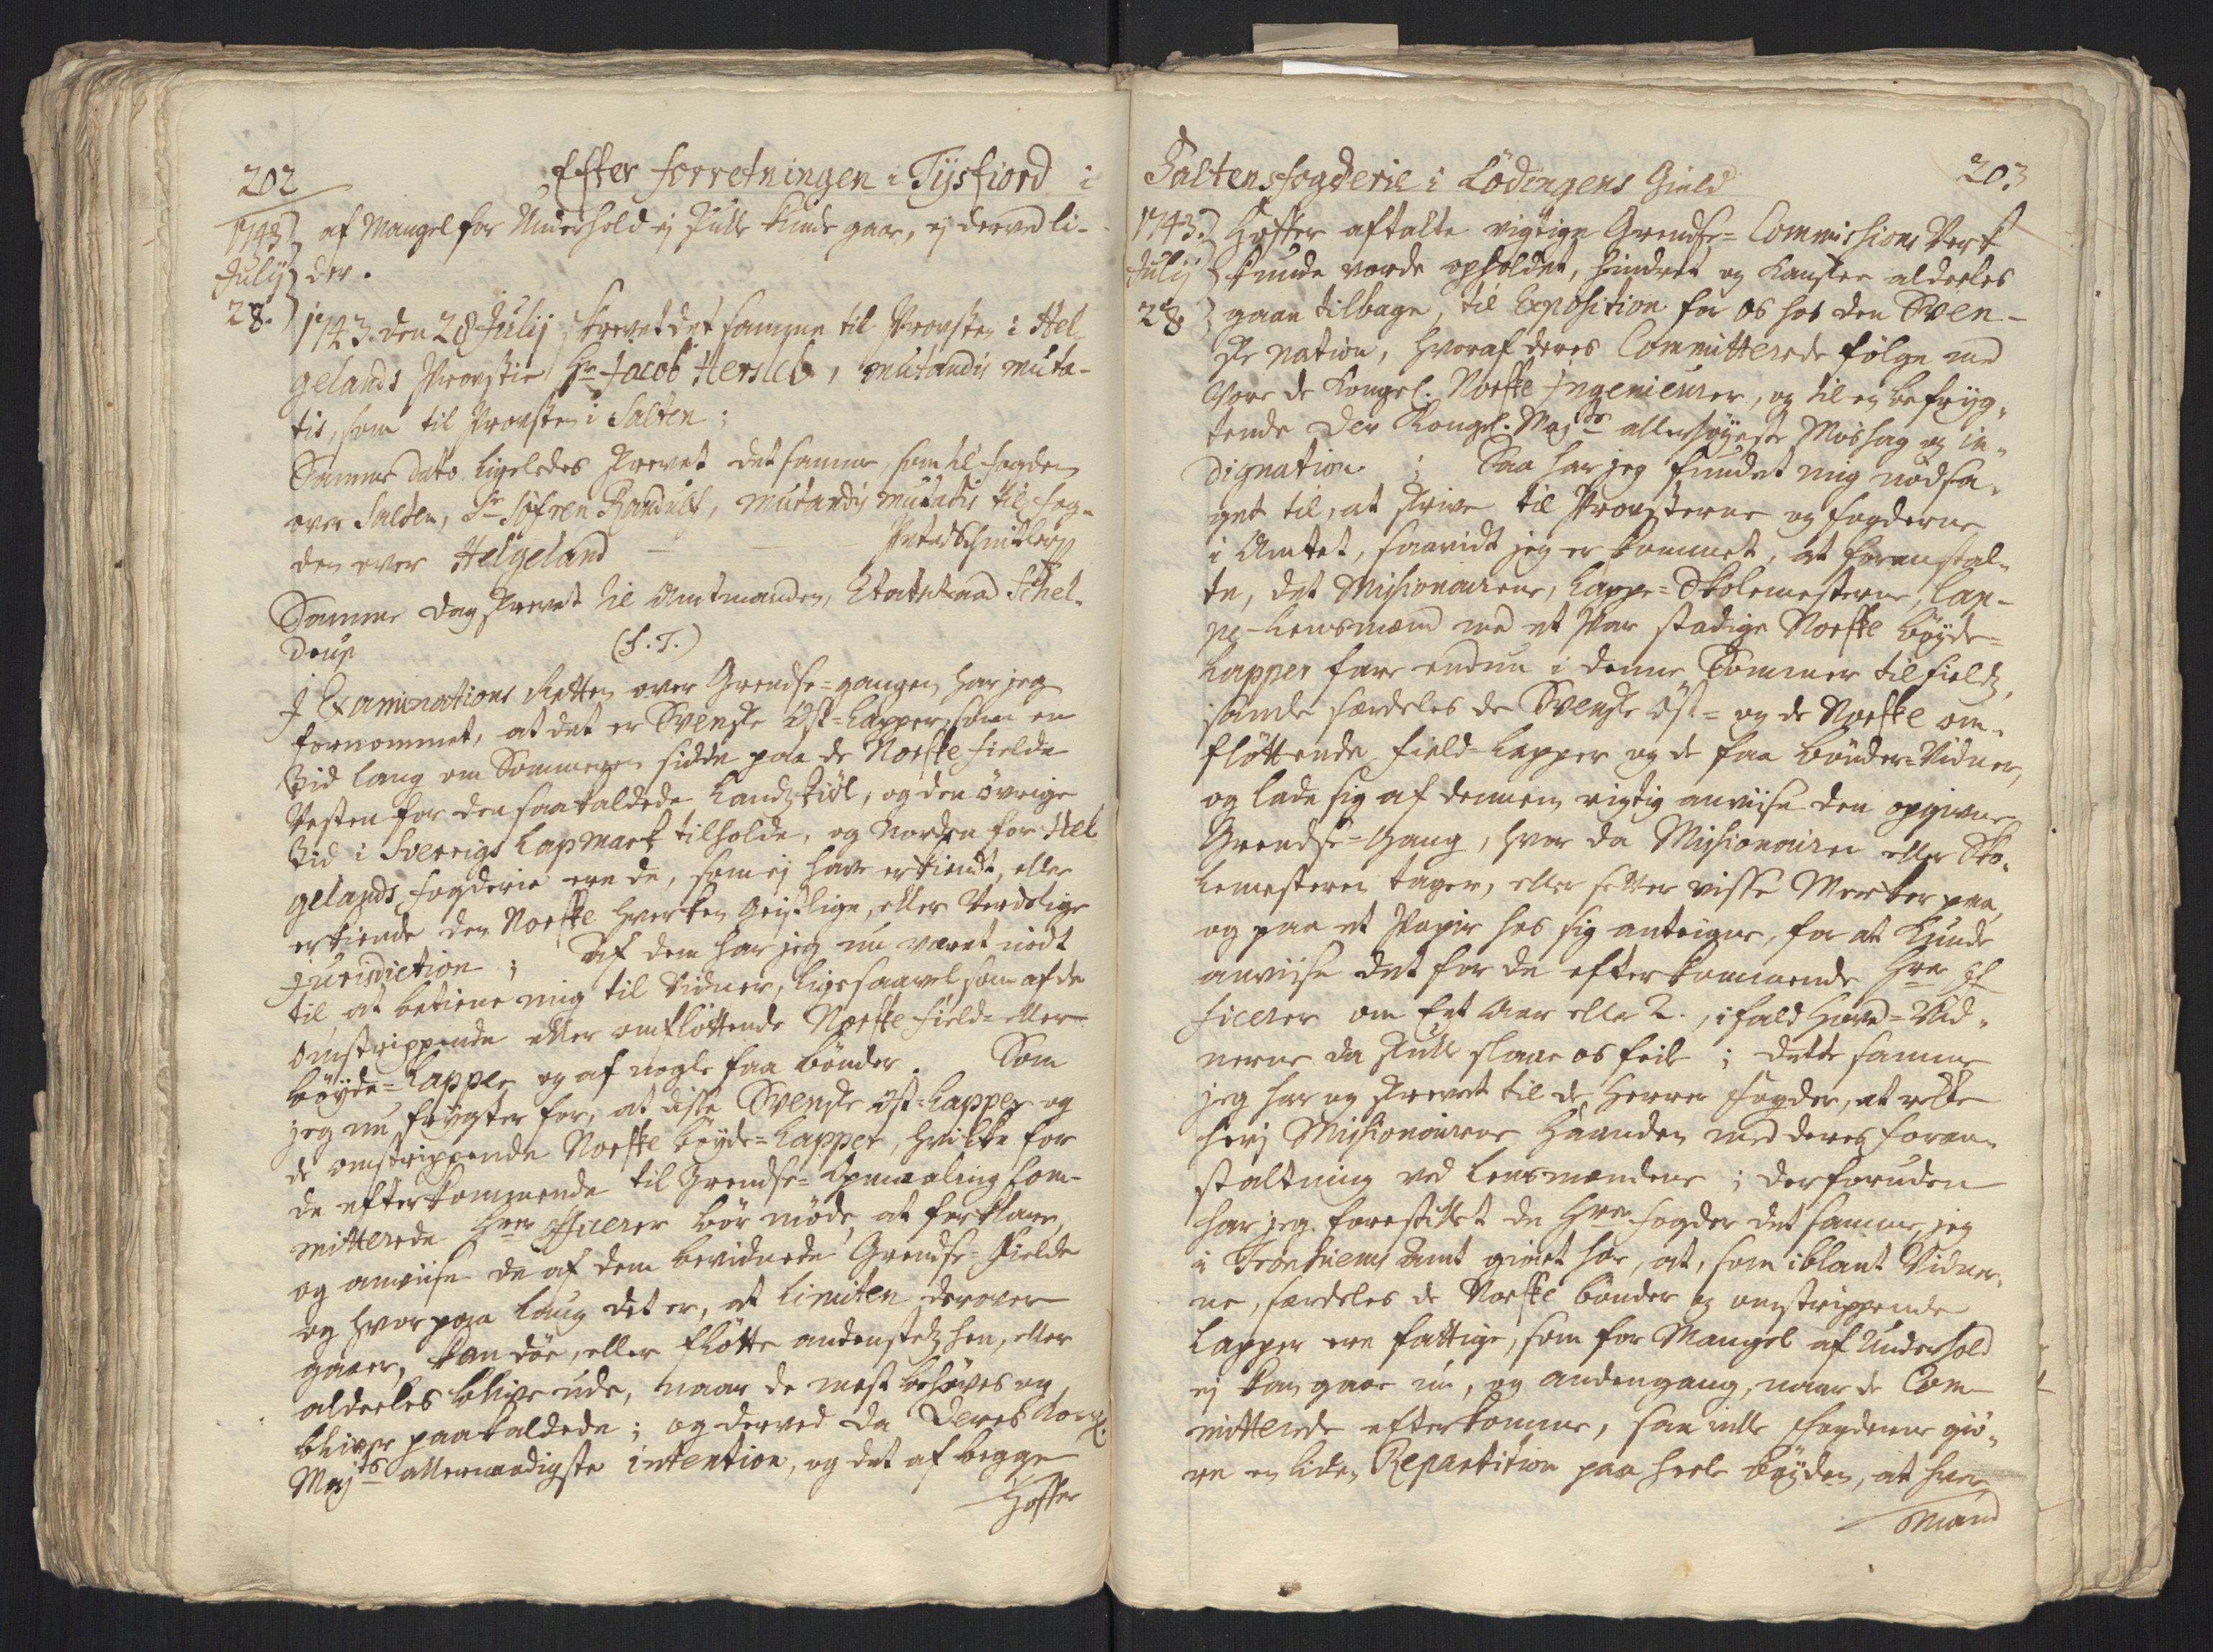 202
Efter forretningen i Tysfiord i
1743
July
28.
af Mangel for Underhold ej skulle kunde gaae, ej derved li-
der.
1743. den 28 Julij skrevet det samme til Provsten i Hel-
gelands Provstie Hr Jacob Hersleb, mutandis muta-
tis, som til Provsten i Salten;
Samme dato ligeledes skrevet det samme, som til fogden
over Salten, Sr Søfren Randulf, mutandis mutatis til fog-
den over Helgeland — Peter Schnitler
Samme dag skrevet til Amtmanden, Etatsraad Schel-
derup
(S. T.)
I Examinations Retten over Grendse-gangen har jeg
fornommet, at det er Svenske Øst-Lapper, som en
Tid lang om Sommeren sidde paa de Norske fielde
Vesten for den saakaldede Landskiöl, og den övrige
Tid i Sverrigs Lapmark tilholde, og Norden for Hel
gelands fogderie ere de, som ej have erkiendt, eller
erkiende den Norske hverken Geistlige, eller Verdslige
Jurisdiction; Af dem har jeg nu været nödt
til at betiene mig til Vidner, ligesaavel som af de
omstrippende eller omflöttende Norske field- eller
böyde-Lapper og af nogle faa bönder. Som
jeg nu frygter for, at disse Svenske Øst-Lapper og
de omstrippende Norske böyde-Lapper, hvilke for
de efterkommende til Grendse-Opmaaling Com-
mitterede Hrer Officerer bör möde, at forklare,
og anviise de af dem bevidnede Grendse-Fielde
og hvor paa Laug det er, at Limiten derover
gaaer, kan döe, eller flötte andenstetz hen, eller
alderles blive ude, naar de mest behöves og
bliver paakaldede; og derved da Deres Kongl.
Majts allernaadigste intention, og det af begge
Hoffer
Saltens fogderie i Lödingens Gield
203
1743.
Julij
28
Hoffer aftalte vigtige Grendse-Commissions Verk
kunde vorde opholdet, hindret og kanskee alderles
gaae tilbage, til Exposition for os hos den Sven-
ske nation, hvoraf deres Committerede fölge med
Vore de Kongel. Norske Ingenieurer, og til en befryg-
tende Der Kongel. Majts allerhöyeste Mishag og in-
dignation; Saa har jeg fundet mig nödsa-
get til, at skrive til Provsterne og fogderne
i Amtet, saavidt jeg er kommet, at foranstal-
te, det Missionairene, Lappe-Skolemesterne, Lap-
pe-Lensmænd med et Par stadige Norske böyde-
Lapper fare endnu i denne Sommer til fields,
samle særdeles de Svenske Øst- og de Norske om-
flöttende field-Lapper og de faa bönder-Vidner,
og lade sig af dennem rigtig anviise den opgivne
Grendse-Gang, hvor da Missionairen eller Sko-
lemesteren tager, eller setter visse Merker paa,
og paa et Papir hos sig anteigne, for at kunde
anviise det for de efterkommende Hrer Of
ficerer om Eet Aar eller 2., ifald Hoved-Vid-
nerne da skulle slaae os feil; dette samme
jeg har og skrevet til de Herrer fogder, at rekke
herj Missionairene Haanden med deres foran-
staltning ved Lensmændene; Desforuden
har jeg forestillet de Hrer fogder det samme, jeg
i Tronhiems Amt giort har, at, som iblant Vidner-
ne, særdeles de Norske bönder og omstrippende
Lapper ere fattige, som for Mangel af Underhold
ej kan gaae nu, og andengang, naar de Com-
mitterede efterkomme, saa ville fogderne giö-
re en liden Repartition paa heele böyden, at hver
Mand